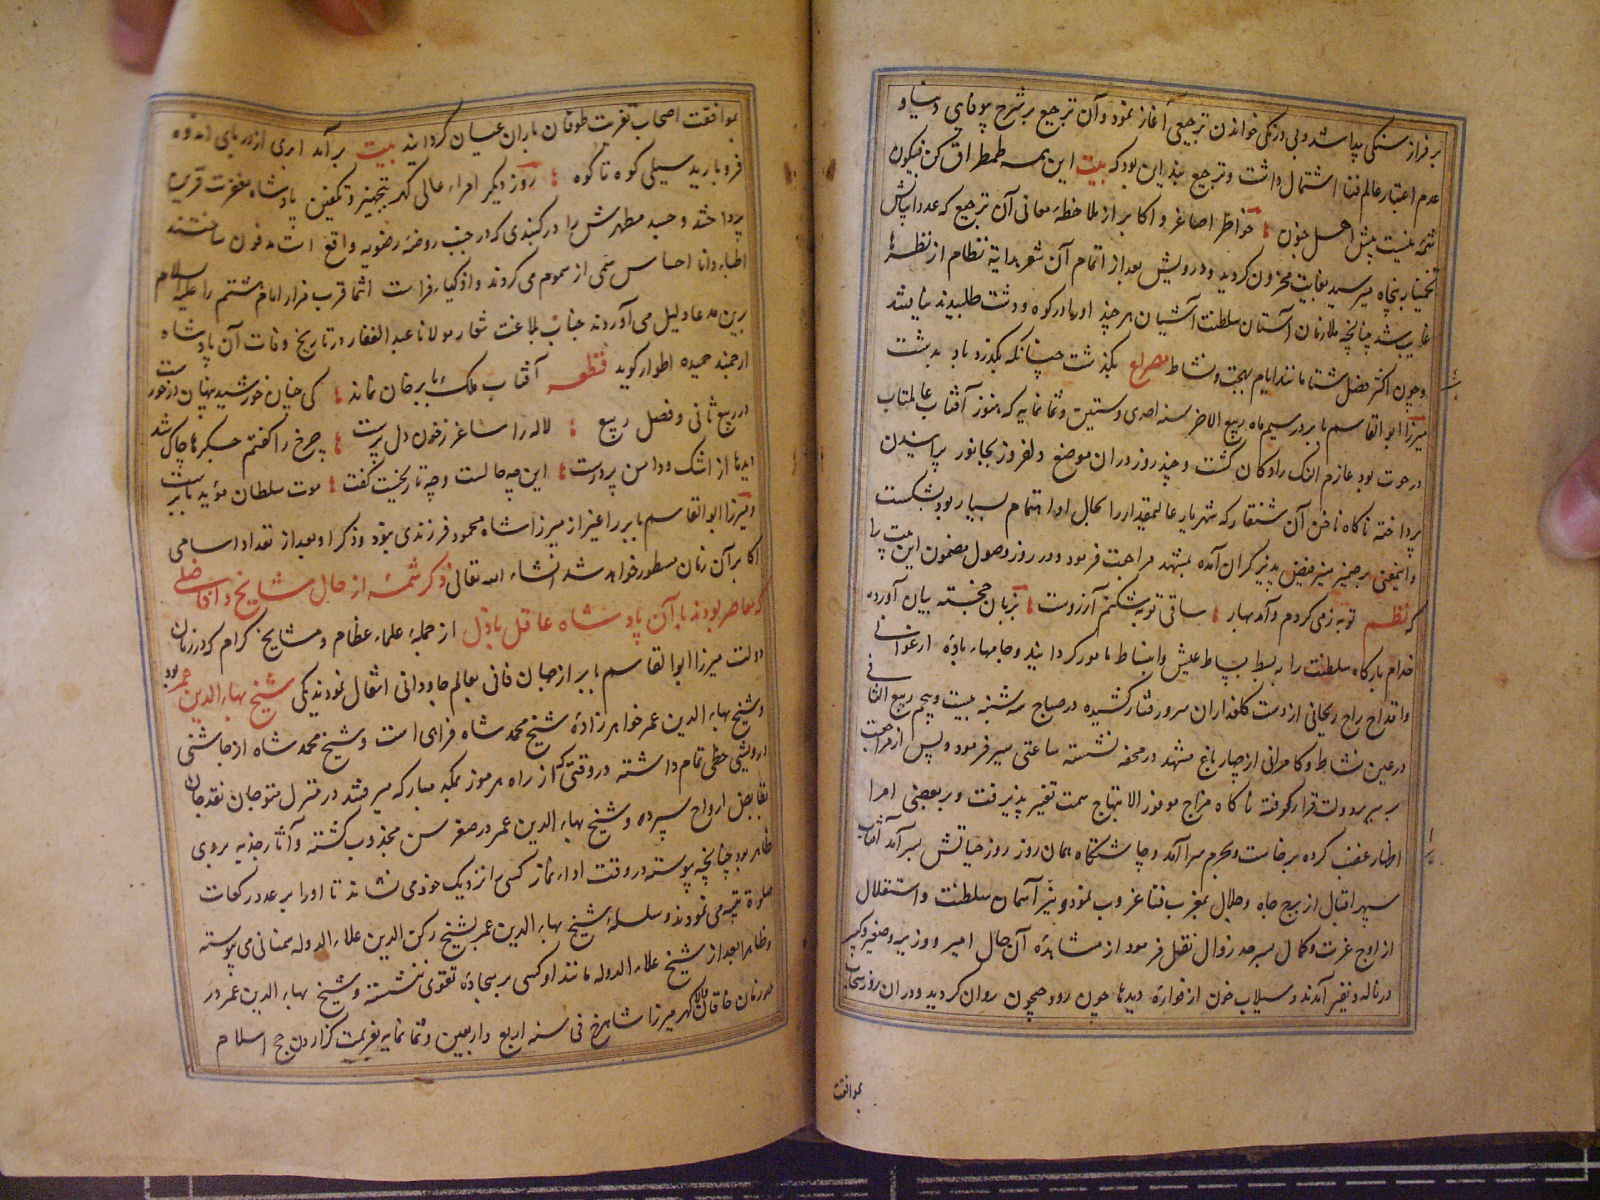 بر فراز سنگی پیدا شد و بی درنگی خواندن ترجیعی آغاز نمود و آن ترجیع بر شرح بیوفایی دنیا و
عدم اعتبار عالم فنا اشتمال داشت و ترجیع بند این بود که بیت این همه طمطراق کن فیکون
شمه نیست پیش اهل جنون خواطر اصاغر و اکابر از ملاحظهٔ معانی آن ترجیع که عدد ابیاتش
تخمینا به پنجاه میرسید بغایت محزون گردید و درویش بعد از اتمام آن شعر بدایة نظام از نظرها
غایب شد چنانچه ملازمان آستان سلطنت آشیان هر چند او را در کوه و دشت طلبیدند نیافتند
و چون اکثر فصل شتا مانند ایام بهجت و نشاط مصراع بگذشت چنانکه بگذرد باد بدشت
میرزا ابوالقاسم بابر در سیم ماه ربیع الاخر سنه احدی و ستین و ثمانمایه که هنوز آفتاب عالمتاب
در حوت بود عازم النک رادکان گشت و چند روز دران موضع دلفروز بجانور پرانیدن
پرداخته ناگاه ناخن آن شنقار که شهریار عالیمقدار را بحال او اهتمام بسیار بود بشکست
و اینمعنی بر ضمیر منیر فیض پذیر گران آمده بمشهد مراجعت فرمود و در روز وصول بمضمون این بیت را
که نظم توبه ز می کردم و آمد بهار ساقی توبه شکنم آرزوست بزبان خجسته بیان آورده
خدام بارگاه سلطنت را به بسط بساط عیش و انبساط مامور گردانید و جامهاء بادهٔ ارغوانی
و اقداح راح ریحانی از دست گلعذاران سرو رفتار کشیده در صباح سه شنبه بیست و پنجم ربیع الثانی
در عین نشاط و کامرانی از چارباغ مشهد در محفه نشسته ساعتی سیر فرمود و پس از مراجعت
بر سریر دولت قرار گرفته ناگاه مزاج موفور الابتهاج سمت تغیر پذیرفت و بر بعضی امرا
اظهار غضب کرده برخاست و بحرم سرا آمد و چاشتگاه همان روز روز حیاتش بسر آمد آفتاب
سپهر اقبال از برج جاه و جلال بمغرب فنا غروب نمود و نیر آسمان سلطنت و استقلال
از اوج عزت و کمال بسر حد زوال نقل فرمود از مشاهدهٔ آن حال امیر و وزیر و صغیر و کبیر
در ناله و نفیر آمدند و سیلاب خون از فوارهٔ دیدها چون رود جیحون روان گردید و دران روز سحاب
بموافقت
بموافقت اصحاب تعزیت طوفان باران عیان گردانید بیت برآمد ابری از دریای اندوه
فرو بارید سیلی کوه تا کوه روز دیگر امراء عالی گهر بتجهیز و تکفین پادشاه مغفرت قرین
پرداختند و جسد مطهرش را در گنبدی که در جنب روضهٔ رضویه واقع است مدفون ساختند
اطباء دانا احساس سمی از سموم می کردند و اذکیاء فراست انتما قرب فرار امام هشتم را علیه السلام
برین مدعا دلیل می آوردند جناب بلاغت شعار مولانا عبد الغفار در تاریخ وفات آن پادشاه
ارجمند حمیده اطوار گوید قطعه آفتاب ملک بابر خان نماند کی چنان خورشید پنهان در خور است
در ربیع ثانی و فصل ربیع لاله را ساغر ز خون دل پرست چرخ را گفتم جگرها چاک شد
دیدها از اشک و دامن پر درست این چه حالست و چه تاریخست گفت موت سلطان مؤید بابرست
و میرزا ابوالقاسم بابر را غیر از میرزا شاه محمود فرزندی نبود و ذکر او بعد از تعداد اسامی
اکابر آن زمان مسطور خواهد شد انشاء الله تعالی ذکر شمهٔ از حال مشایخ و افاضلی
که معاصر بودند با آن پادشاه عاقل باذل از جملهٔ علماء عظام و مشایخ کرام که در زمان
دولت میرزا ابوالقاسم بابر از جهان فانی بعالم جاودانی انتقال نمودند یکی شیخ بهاء الدین عمر بود
و شیخ بهاء الدین عمر خواهرزادهٔ شیخ محمد شاه فراهی است و شیخ محمد شاه از چاشنی
درویشی حظی تمام داشته و در وقتی که از راه هرموز بمکه مبارکه میرفته در منزل منوجان نقد جان
بقابض ارواح سپرده و شیخ بهاء الدین عمر در صغر سن مجذوب گشته و آثار جذبه بروی
ظاهر بود چنانچه پیوسته در وقت اداء نماز کسی را نزدیک خود می نشاند تا او را بر عدد رکعات
صلوة تنبیه می نمودند و سلسلهٔ شیخ بهاء الدین عمر بشیخ رکن الدین علاء الدوله سمنانی می پیوسته
و ظاهرا بعد از شیخ علاء الدوله مانند او کسی بر سجادهٔ تقوی ننشسته و شیخ بهاء الدین عمر در
در زمان خاقان والا گهر میرزا شاهرخ فی سنه اربع و اربعین و ثمانمایه بعزیمت گزاردن حج اسلام